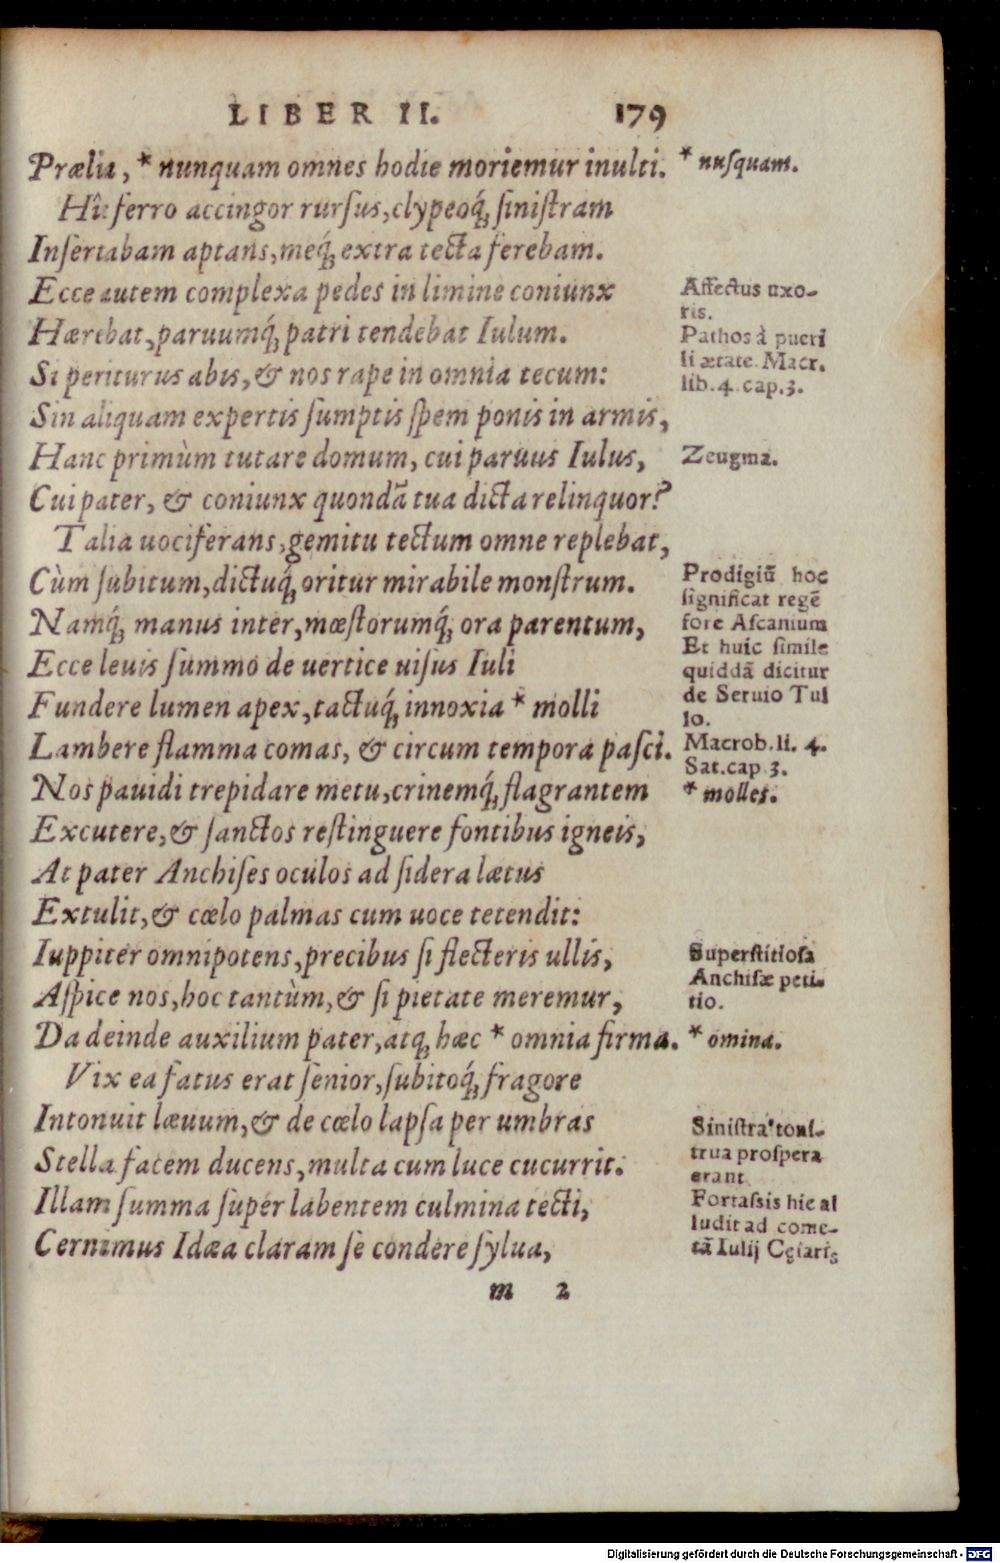 LIBER II. 179
Prælia, * nunquam omnes hodie moriemur inulti. * nusquam.
Hîc ferro accingor rursus, clypeoq́; sinistram
Insertabam aptans, meq́; extra tecta ferebam.
Ecce autem complexa pedes in limine coniunx
Hærebat, paruumq́; patri tendebat Iulum.
Si periturus abis, & nos rape in omnia tecum:
Sin aliquam expertis sumptis spem ponis in armis,
Hanc primùm tutare domum, cui paruus Iulus,
Cui pater, & coniunx quondã tua dicta relinquor?
Talia uociferans, gemitu tectum omne replebat,
Cùm subitum, dictuq́; oritur mirabile monstrum.
Namq́; manus inter, mœstorumq́; ora parentum,
Ecce leuis summo de uertice uisus Iuli
Fundere lumen apex, tactuq́; innoxia * molli
Lambere flamma comas, & circum tempora pasci.
Nos pauidi trepidare metu, crinemq́; flagrantem
Excutere, & sanctos restinguere fontibus igneis,
At pater Anchises oculos ad sidera lætus
Extulit, & cœlo palmas cum uoce tetendit:
Iuppiter omnipotens, precibus si flecteris ullis,
Aspice nos, hoc tantùm, & si pietate meremur,
Da deinde auxilium pater, atq; hæc * omnia firma. * omina.
Vix ea fatus erat senior, subitoq́; fragore
Intonuit læuum, & de cœlo lapsa per umbras
Stella facem ducens, multa cum luce cucurrit.
Illam summa super labentem culmina tecti,
Cernimus Idæa claram se condere sylua,
Affectus uxo-
ris.
Pathos à pueri
li ætate. Macr.
lib. 4. cap. 3.
Zeugma.
Prodigiũ hoc
significat regẽ
fore Ascanium
Et huic simile
quiddã dicitur
de Seruio Tul
lo.
Macrob. li. 4.
Sat. cap 3.
* molles.
Superstitiosa
Anchisæ peti-
tio.
Sinistra toni-
trua prospera
erant.
Fortassis hic al
ludit ad come-
tã Iulij Cęsaris
m 2
Digitalisierung gefördert durch die Deutsche Forschungsgemeinschaft - DFG